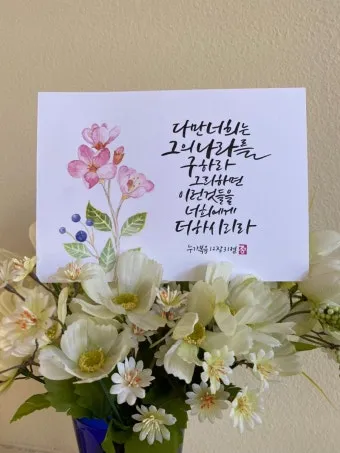 다만너희는
그의나라를
구하라
그리하면
이런것들을
너희에게
더하시리라
누가복음 12장31절